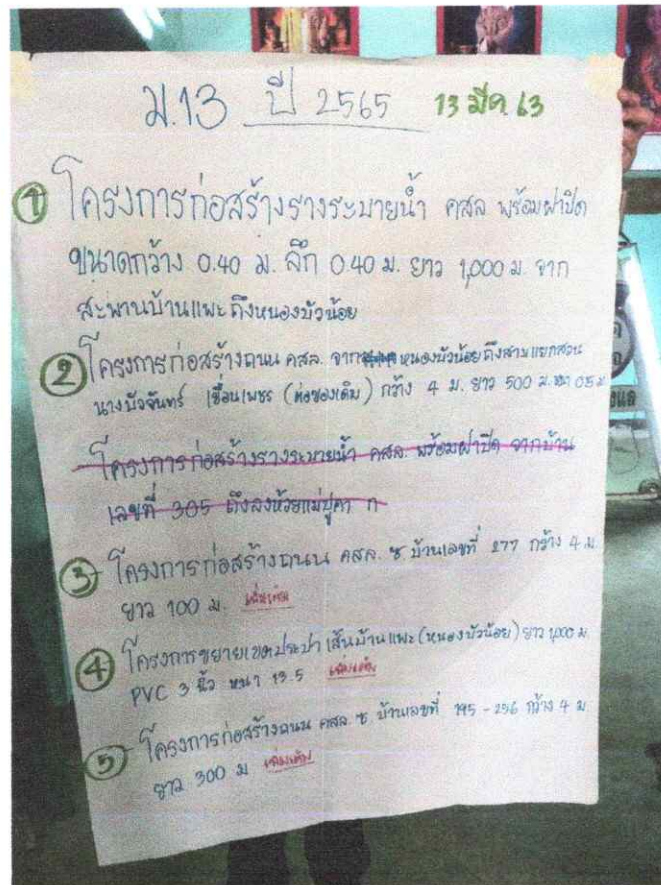 ม.13 ปี 2565 13 มีค 63
① โครงการก่อสร้างรางระบายน้ำ คสล พร้อมฝาปิด
ขนาดกว้าง 0.40 ม. ลึก 0.40 ม. ยาว 1,000 ม. จาก
สะพานบ้านแพะถึงหนองบัวน้อย
② โครงการก่อสร้างถนน คสล. จาก หนองบัวน้อยถึงสามแยกสวน
นางบัวจันทร์ เขื่อนเพชร (ต่อของเดิม) กว้าง 4 ม. ยาว 500 ม. หนา 0.15 ม
โครงการก่อสร้างรางระบายน้ำ คสล. พร้อมฝาปิด จากบ้าน
เลขที่ 305 ถึงลงห้วยแม่ปูคา ก
③ โครงการก่อสร้างถนน คสล. ซ. บ้านเลขที่ 277 กว้าง 4 ม
ยาว 100 ม. เพิ่มเติม
④ โครงการขยายเขตประปา เส้นบ้านแพะ (หนองบัวน้อย) ยาว 1,000 ม.
PVC 3 นิ้ว หนา 13.5 เพิ่มเติม
⑤ โครงการก่อสร้างถนน คสล. ซ. บ้านเลขที่ 195 - 256 กว้าง 4 ม
ยาว 300 ม เพิ่มเติม